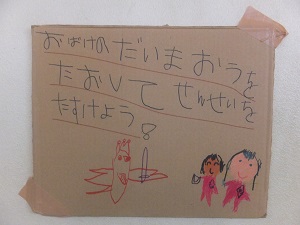 おばけのだいまおうを
たおして せんせいを
たすけよう!